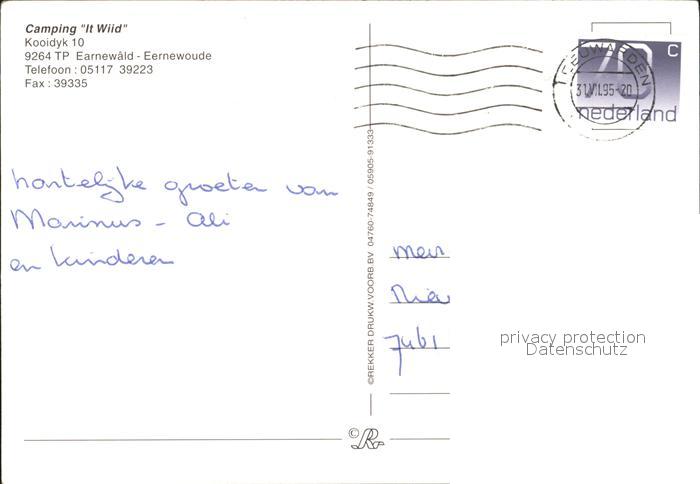 Camping "It Wiid"
Kooidyk 10
9264 TP Earnewâld - Eernewoude
Telefoon : 05117 39223
Fax : 39335
LEEUWARDEN
31.VII.95-20
70 c
nederland
hartelijke groeten van
Marinus - Ali
en kinderen
©REKKER DRUKW.VOORB.BV 04760-74849 / 05905-91333
7461
privacy protection
Datenschutz
©R